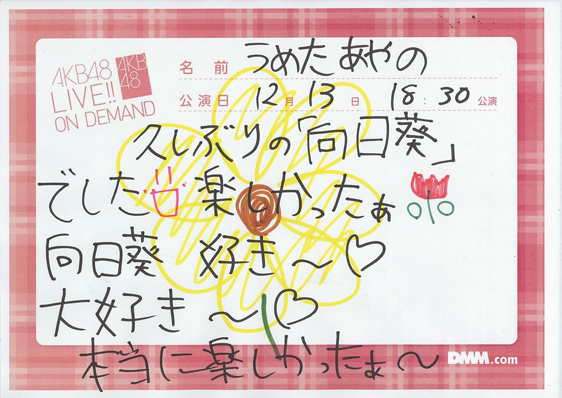 AKB48
LIVE!!
ON DEMAND
AKB
48
名前 うめたあやの
公演日 12月13日 18:30公演
久しぶりの「向日葵」
でした 楽しかったぁ
向日葵 好き〜♡
大好き〜♡
本当に楽しかったぁ〜
DMM.com